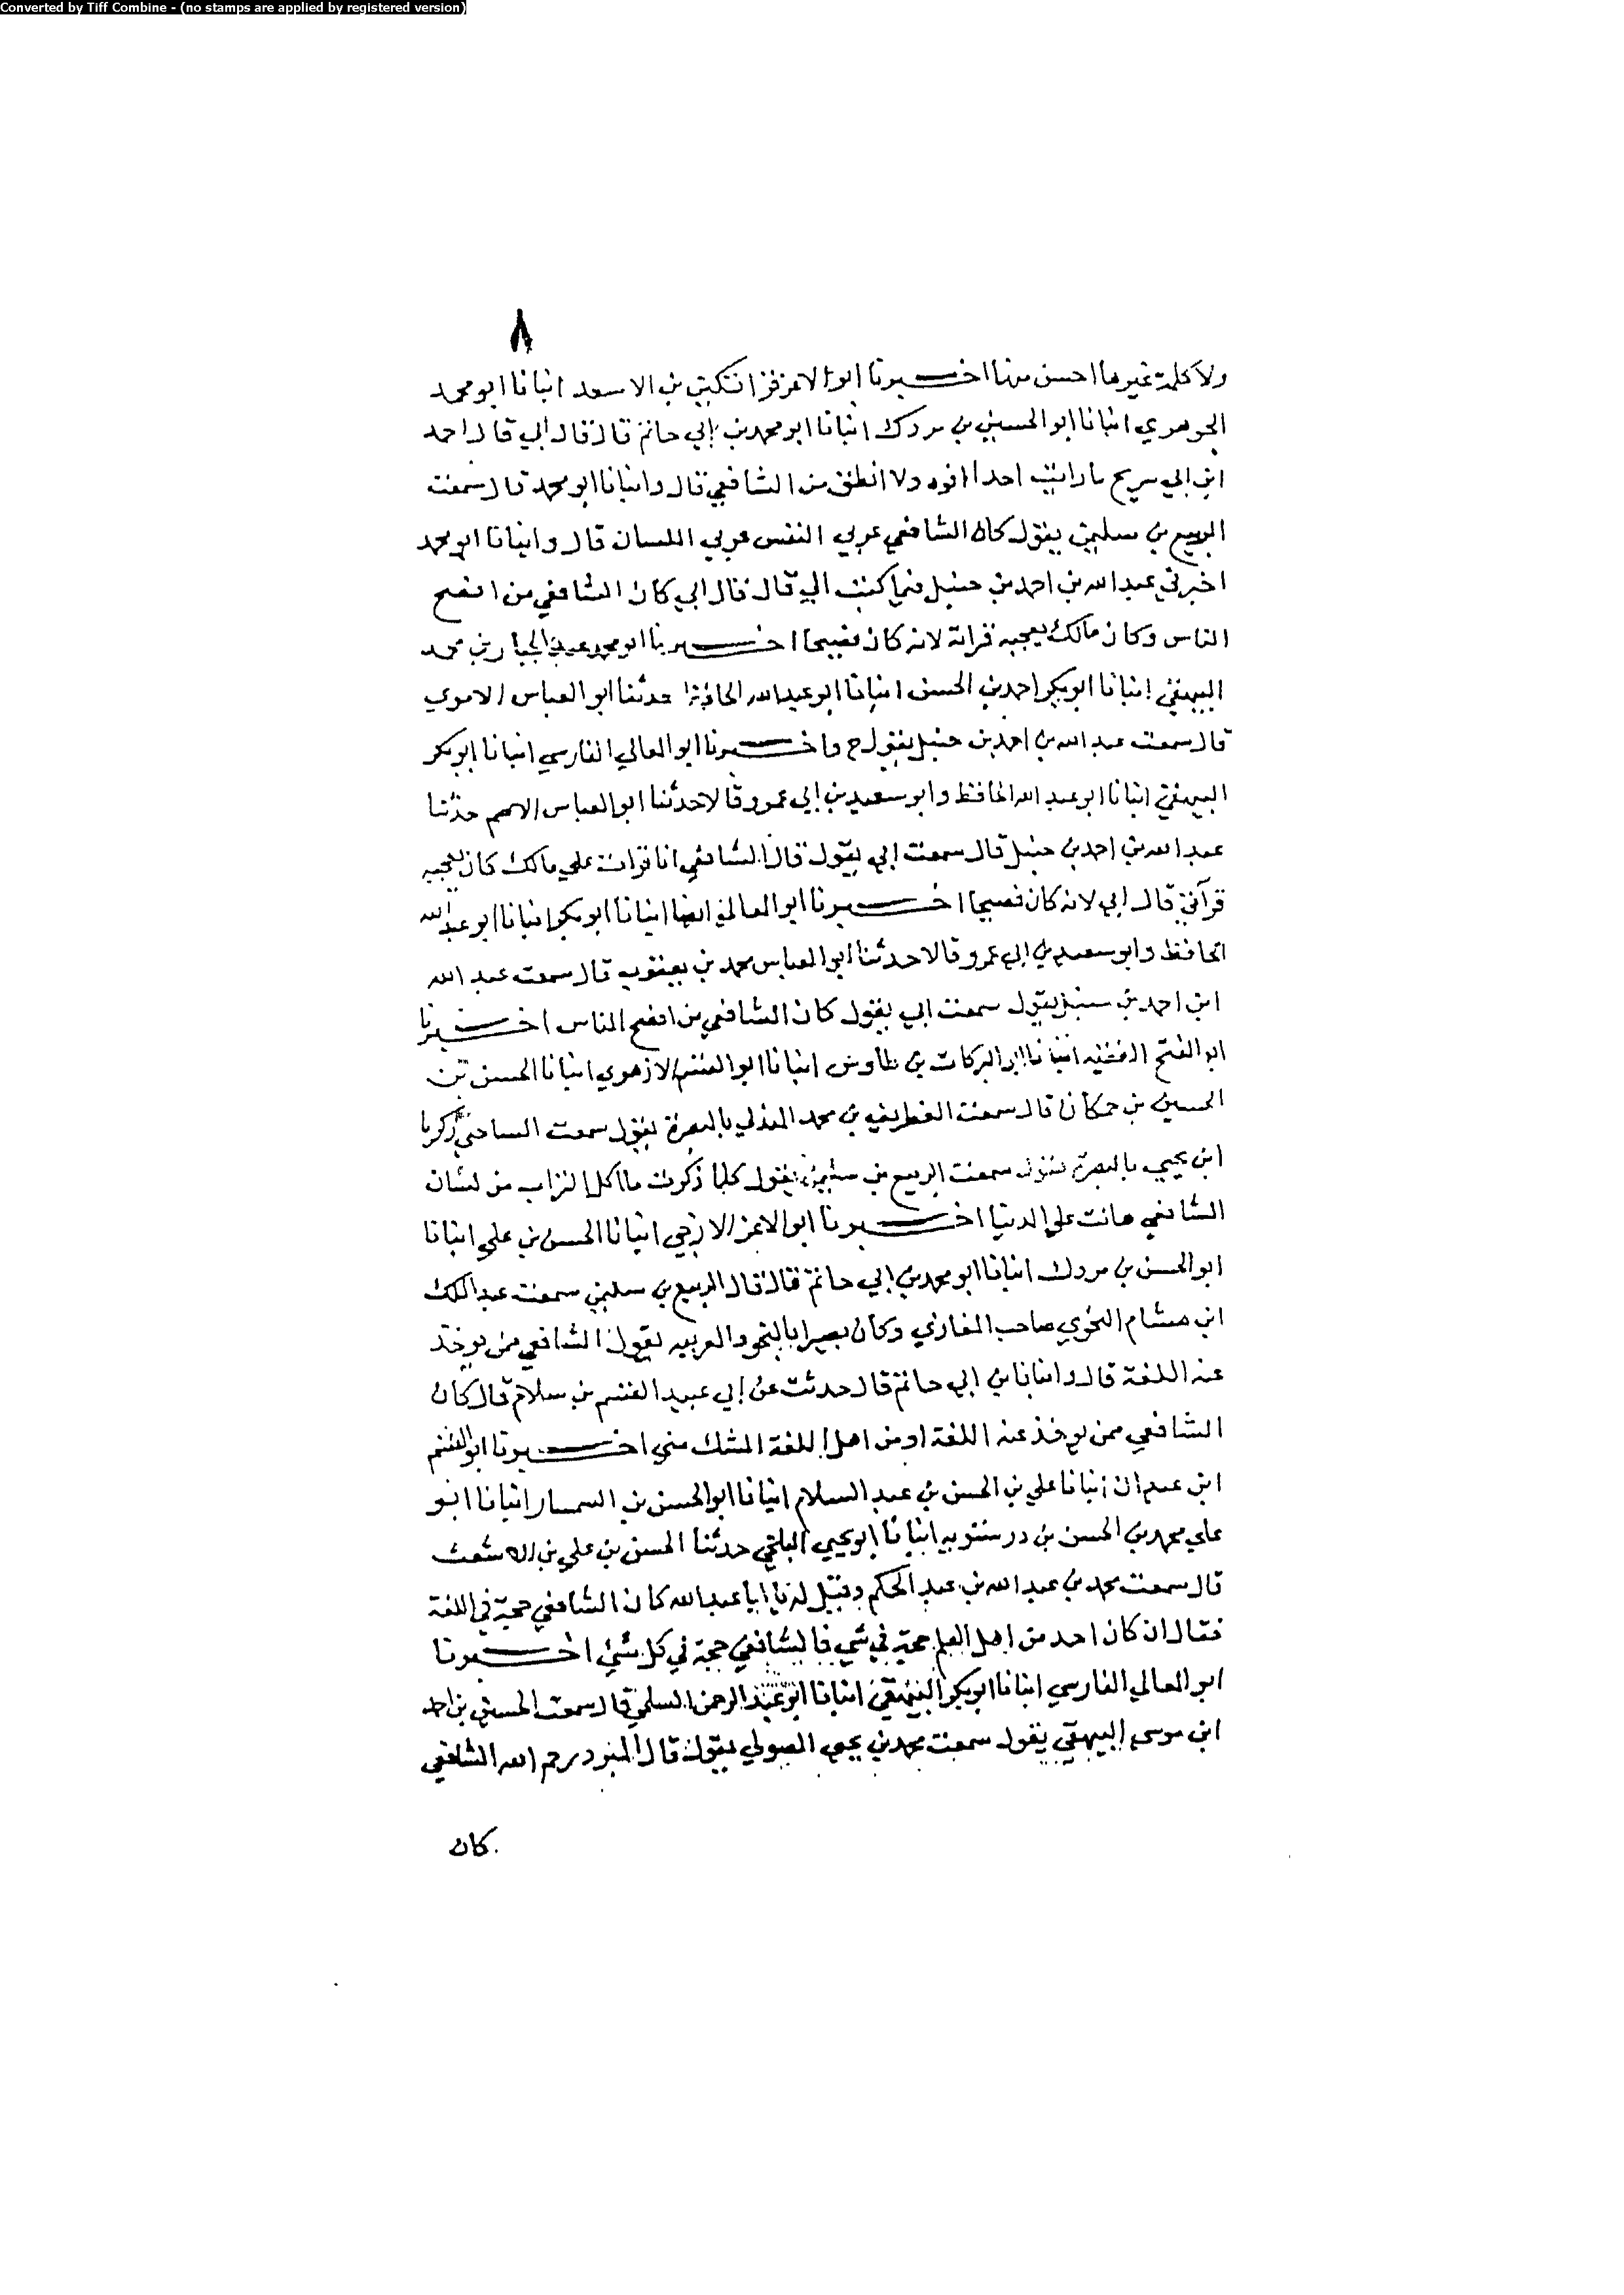 Converted by Tiff Combine - (no stamps are applied by registered version)
٨
ولا كلمة غيرها احسن منها اخبرنا ابو الاعز قراتكين بن الاسعد انبانا ابو محمد
الجوهري انبانا ابو الحسين بن مردك انبانا ابو محمد بن ابي حاتم قال قال ابي قال احمد
ابن ابي سريج ما رايت احدا افوه ولا انطق من الشافعي قال وانبانا ابو محمد قال سمعت
الربيع بن سليمن يقول كان الشافعي عربي النفس عربي اللسان قال وانبانا ابو محمد
اخبرني عبد الله بن احمد بن حنبل فيما كتب الي قال قال ابي كان الشافعي من افصح
الناس وكان مالك يعجبه قراته لانه كان فصيحا اخبرنا ابو محمد عبد الجبار بن محمد
البيهقي انبانا ابو بكر احمد بن الحسن انبانا ابو عبد الله الحافظ حدثنا ابو العباس الاموي
قال سمعت عبد الله بن احمد بن حنبل يقول ح واخبرنا ابو المعالي الفارسي انبانا ابو بكر
البيهقي انبانا ابو عبد الله الحافظ وابو سعيد بن ابي عمرو قالا حدثنا ابو العباس الاصم حدثنا
عبد الله بن احمد بن حنبل قال سمعت ابي يقول قال الشافعي انا قرات علي مالك كان يعجبه
قرآتي قال ابي لانه كان فصيحا اخبرنا ابو المعالي ايضا انبانا ابو بكر انبانا ابو عبد الله
الحافظ وابو سعيد بن ابي عمرو قالا حدثنا ابو العباس محمد بن يعقوب قال سمعت عبد الله
ابن احمد بن حنبل يقول سمعت ابي يقول كان الشافعي من افصح الناس اخبرنا
ابو الفتح الفقيه انبانا ابو البركات بن طاوس انبانا ابو القسم الازهري انبانا الحسن بن
الحسين بن حمكان قال سمعت الغطريف بن محمد بالبصرة يقول سمعت الساجي زكريا
ابن يحيي بالبصرة يقول سمعت الربيع بن سليمن يقول كلما ذكرت ما اكل التراب من لسان
الشافعي هانت علي الدنيا اخبرنا ابو الاعز الازجي انبانا الحسن بن علي انبانا
ابو الحسن بن مردك انبانا ابو محمد بن ابي حاتم قال قال الربيع بن سليمن سمعت عبد الملك
ابن هشام النحوي صاحب المغازي وكان بصيرا بالنحو والعربيه يقول الشافعي ممن يوخذ
عنه اللغة قال وانبانا بن ابي حاتم قال حدثت عن ابي عبيد القسم بن سلام قال كان
الشافعي ممن يوخذ عنه اللغة او من اهل اللغة الشك مني اخبرنا ابو القسم
ابن عبدان انبانا علي بن الحسن بن عبد السلام انبانا ابو الحسن بن السمسار انبانا ابو
علي محمد بن الحسن بن درستويه انبانا ابو يحيي البلخي حدثنا الحسن بن علي بن الاشعث
قال سمعت محمد بن عبد الله بن عبد الحكم وقيل له يا ابا عبد الله كان الشافعي حجة في اللغة
فقال ان كان احد من اهل العلم حجة في شي فالشافعي حجة في كل شئ اخبرنا
ابو المعالي الفارسي انبانا ابو بكر البيهقي انبانا ابو عبد الرحمن السلمي قال سمعت الحسين بن احمد
ابن موسى البيهقي يقول سمعت محمد بن يحيى الصولي يقول قال المبرد رحم الله الشافعي
كان